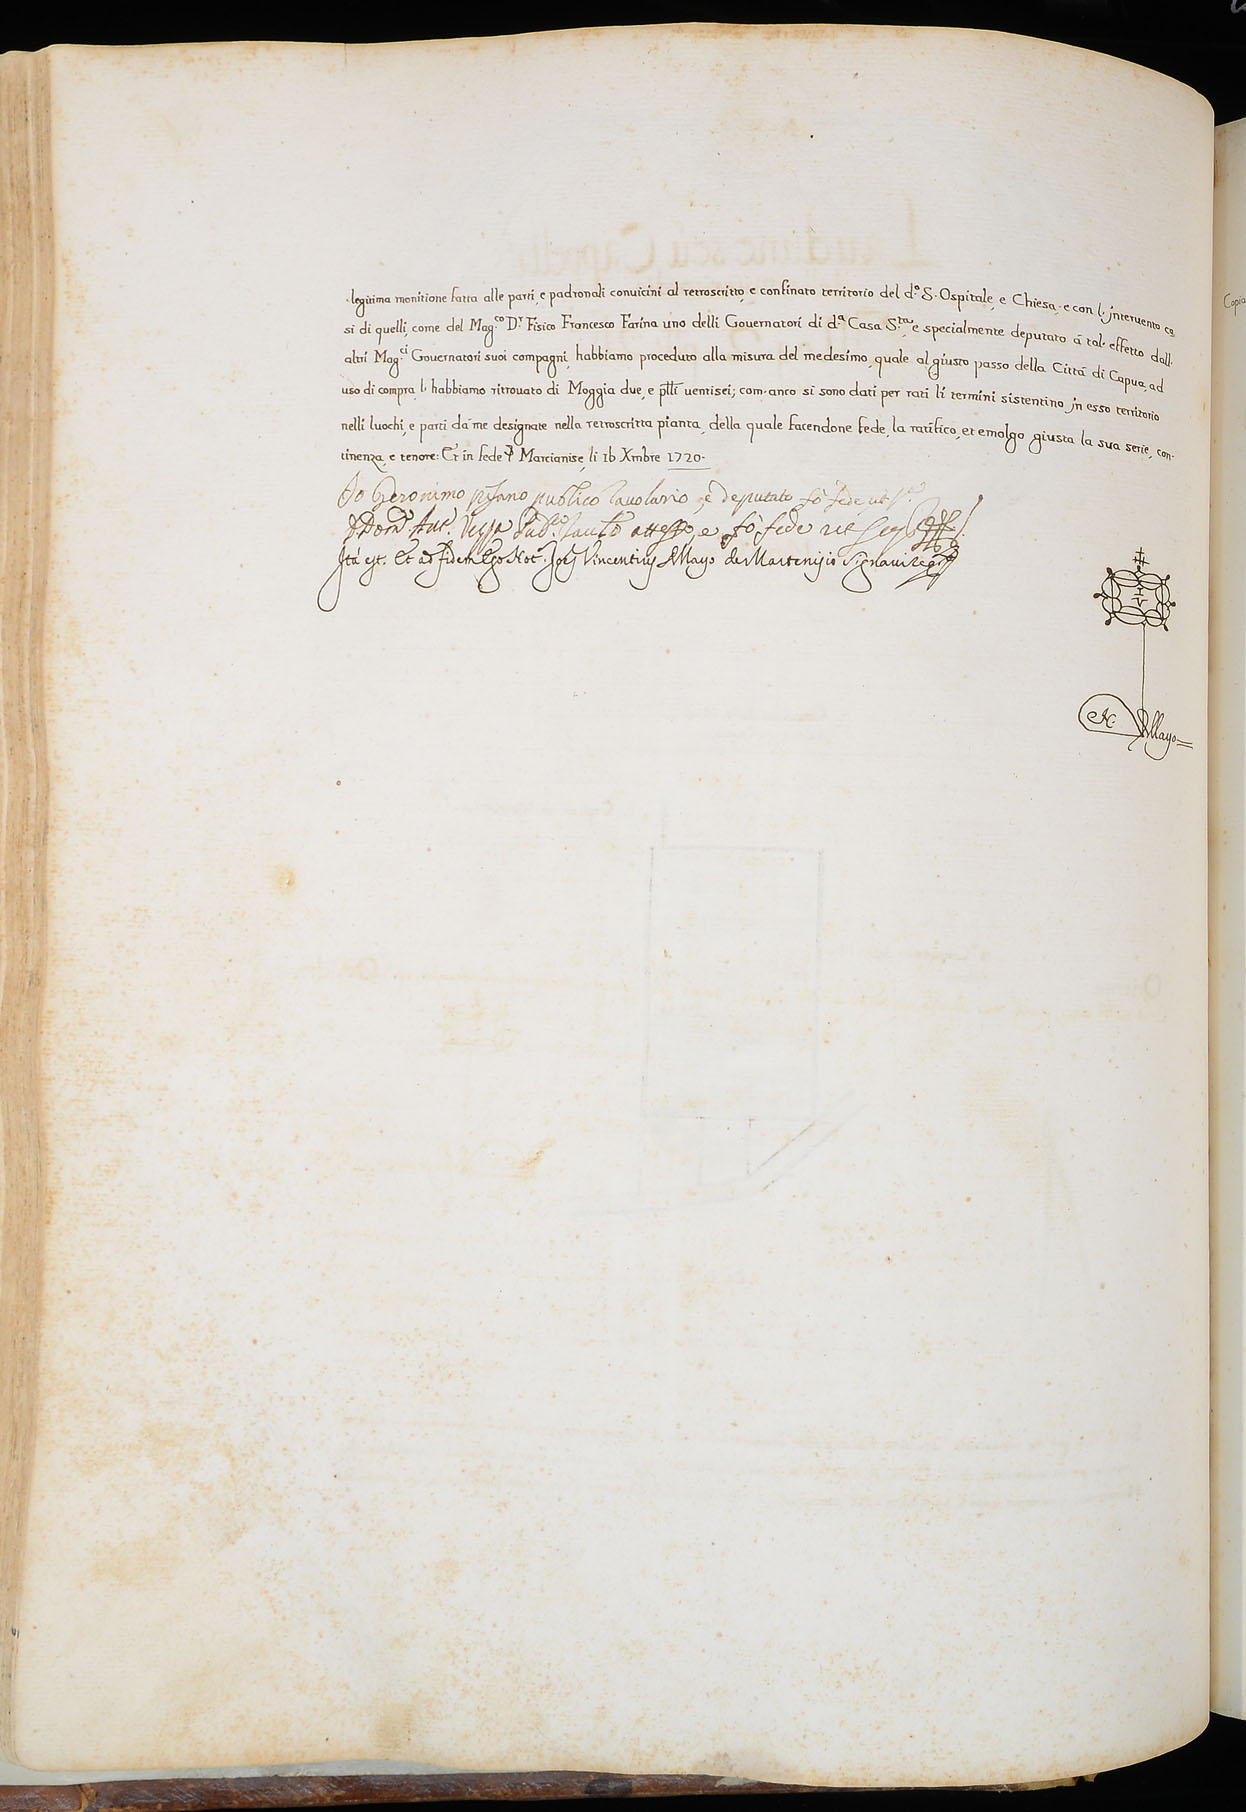 legitima monitione fatta alle parti, e padronali conuicini al retroscritto, e confinato territorio del d.º S. Ospitale, e Chiesa, e con l'interuento co
si di quelli, come del Mag.co D.r Fisico Francesco Farina uno delli Gouernatori di d.a Casa S.ta, e specialmente deputato á tal' effetto dall'
altri Mag.ci Gouernatori suoi compagni, habbiamo proceduto alla misura del medesimo, quale al giusto passo della Cittá di Capua, ad
uso di compra, l' habbiamo ritrouato di Moggia due, e uentisei; com' anco si sono dati per rati li termini sistentino in esso territorio
nelli luochi, e parti da me designate nella retroscritta pianta, della quale facendone fede, la ratifico, et emolgo giusta la sua serie, con-
tinenza, e tenore: Et in fede Marcianise, li 16 Xmbre 1720.
Io Geronimo pisano publico tauolario, e deputato fó fede ut s.a
Ant.º attesto, e fó fede ut
Ita est. Et ad fidem Ego Not. Vincentius signaui
Copia